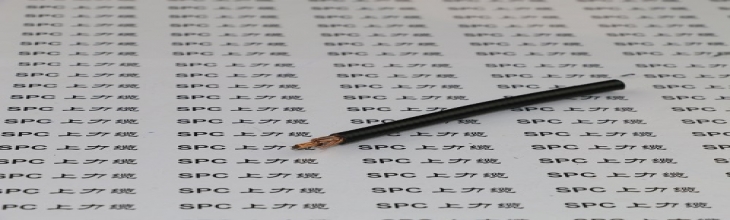 SPC 上力缆 SPC 上力缆 SPC 上力缆 SPC 上力缆 SPC 上力缆
SPC 上力缆 SPC 上力缆 SPC 上力缆 SPC 上力缆 SPC 上力缆
SPC 上力缆 SPC 上力缆 SPC 上力缆 SPC 上力缆 SPC 上力缆
SPC 上力缆 SPC 上力缆 SPC 上力缆 SPC 上力缆 SPC 上力缆
SPC 上力缆 SPC 上力缆 SPC 上力缆 SPC 上力缆 SPC 上力缆
SPC 上力缆 SPC 上力缆 SPC 上力缆 SPC 上力缆 SPC 上力缆
SPC 上力缆 SPC 上力缆 SPC 上力缆 SPC 上力缆 SPC 上力缆
SPC 上力缆 SPC 上力缆 SPC 上力缆 SPC
SPC 上力缆 SPC 上力缆 SPC 上力缆 SPC 上力缆
SPC 上力缆 SPC 上力缆 SPC 上力缆 SPC 上力缆 SPC
SPC 上力缆 SPC 上力缆 SPC 上力缆 SPC
SPC 上力缆 SPC 上力缆 SPC 上力缆 SPC
SPC 上力缆 SPC 上力缆 SPC 上力缆 SPC 上力缆 SPC
SPC 上力缆 SPC 上力缆 SPC 上力缆 SPC 上力缆
SPC 上力缆 SPC 上力缆 SPC 上力缆 SPC 上力缆
SPC 上力缆 SPC 上力缆 SPC 上力缆 SPC 上力缆
SPC 上力缆 SPC 上力缆 SPC 上力缆 SPC 上力缆